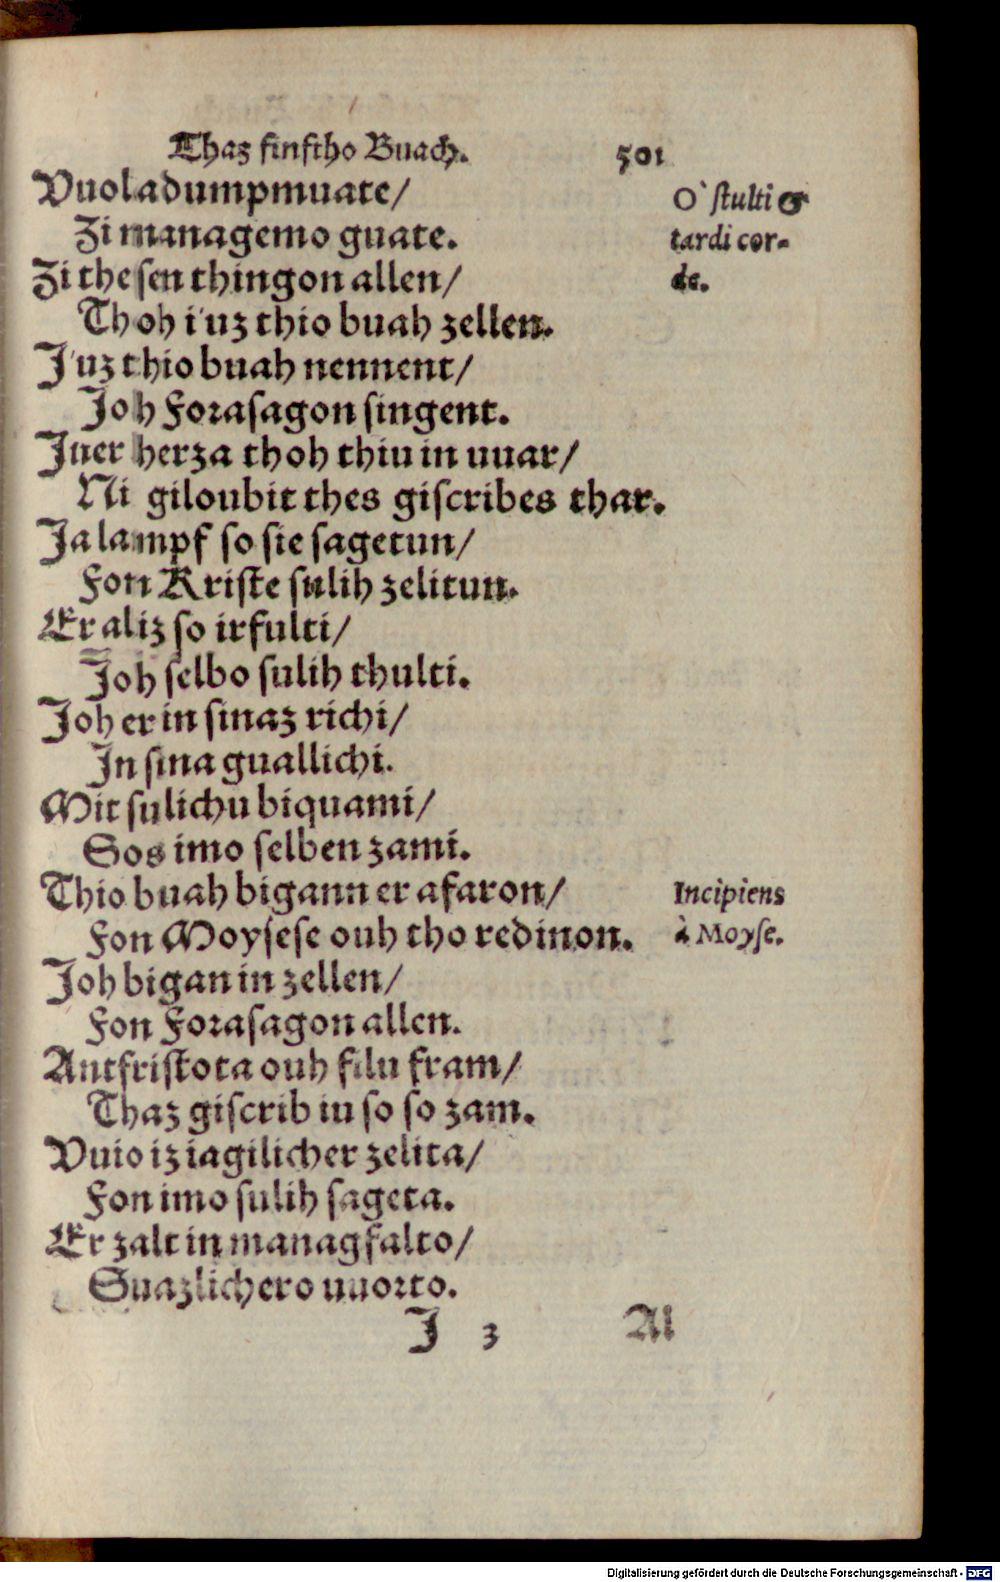 Thaz finftho Buach. 501
Vuoladumpmuate/
Zi managemo guate.
O` ſtulti &
tardi cor-
de.
Zi theſen thingon allen/
Thoh i'uz thio buah zellen.
J'uz thio buah nennent/
Joh Foraſagon ſingent.
Juer herza thoh thiu in uuar/
Ni giloubit thes giſcribes thar.
Ja lampf ſo ſie ſagetun/
Fon Kriſte ſulih zelitun.
Er aliz ſo irfulti/
Joh ſelbo ſulih thulti.
Joh er in ſinaz richi/
In ſina guallichi.
Mit ſulichu biquami/
Sos imo ſelben zami.
Thio buah bigann er afaron/
Fon Moyſeſe ouh tho redinon.
Incipiens
à Moyſe.
Joh bigan in zellen/
Fon Foraſagon allen.
Antfriſtota ouh filu fram/
Thaz giſcrib iu ſo ſo zam.
Vuio iz iagilicher zelita/
Fon imo ſulih ſageta.
Er zalt in managfalto/
Suazlichero uuorto.
J 3 Al
Digitalisierung gefördert durch die Deutsche Forschungsgemeinschaft - DFG